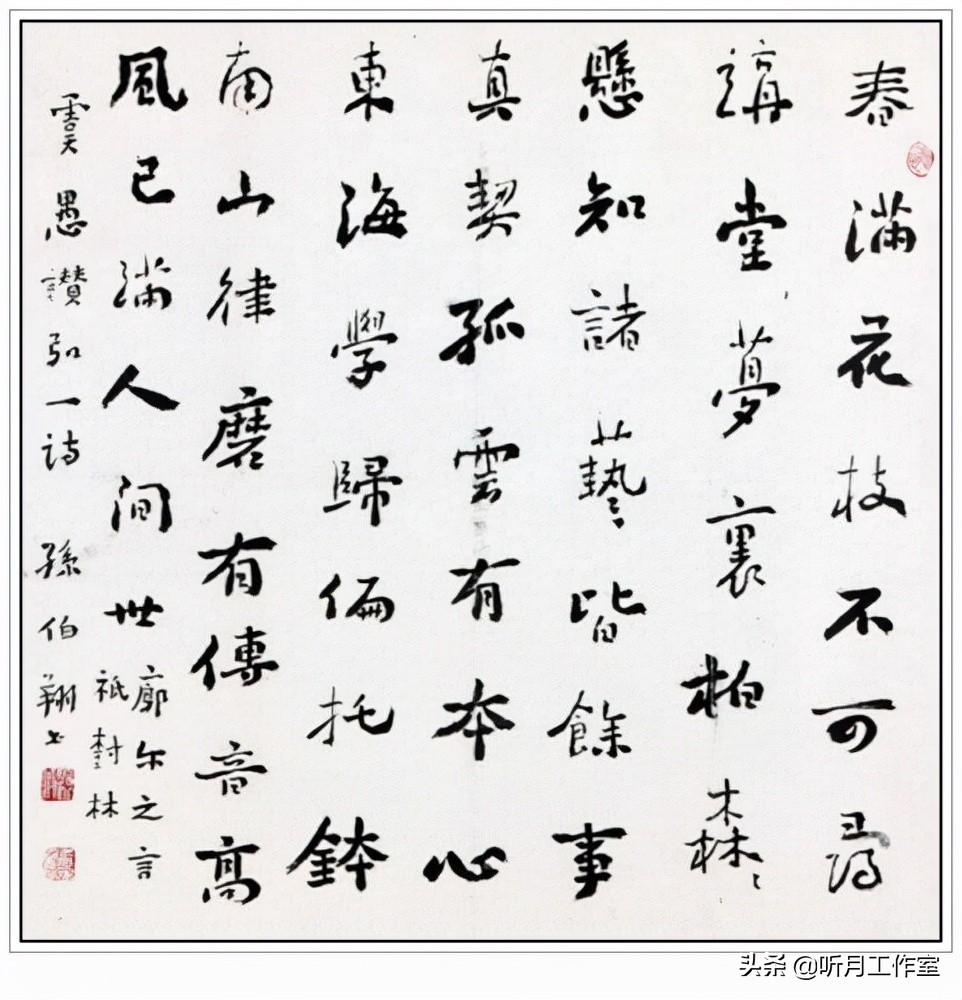 春滿花枝不可尋
講堂夢裏柏森〻
懸知諸藝皆餘事
真契孤雲有本心
東海學歸偏托鉢
南山律磨有傳音高
風已滿人间世廓尔之言
祇對林
虞愚讚弘一诗 孫伯翔书
头条 @听月工作室